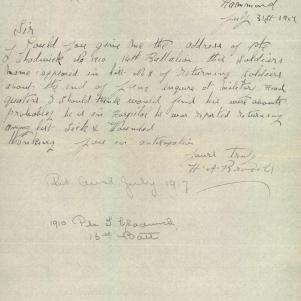 Hammond
July 31st 1917
Sir
Would you give me the address of Pte
Chadwick No 1910 14th Battalion this soldiers
name appeared in list of returning soldiers
about the end of June inquire at military Head
Quarters I should think would find his were abouts
probably he is in Hospital he was reported returning
among list Sick & Wounded
Thanking you in anticipation
yours Truly
H A
Ret Aust July 1917
1910 Pte Chadwick
Batt